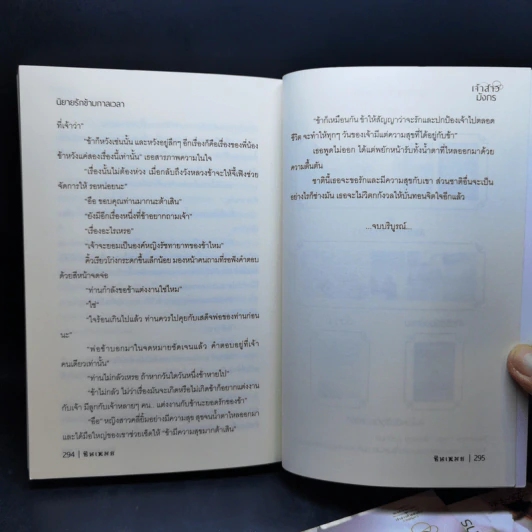 นิยายรักข้ามกาลเวลา
ที่เจ้าว่า"
"ข้าก็หวังเช่นนั้น และหวังอยู่ลึกๆ อีกเรื่องก็คือเรื่องของพี่น้อง
ข้าหวังแค่สองเรื่องนี้เท่านั้น" เธอสารภาพความในใจ
"เรื่องนั้นไม่ต้องห่วง เมื่อกลับถึงวังหลวงข้าจะให้จี้เฟิงช่วย
จัดการให้ รอหน่อยนะ"
"อือ ขอบคุณท่านมากนะต้าเสิน"
"ยังมีอีกเรื่องหนึ่งที่ข้าอยากถามเจ้า"
"เรื่องอะไรเหรอ"
"เจ้าจะยอมเป็นองค์หญิงรัชทายาทของข้าไหม"
คิ้วเรียวโก่งกระตกขึ้นเล็กน้อย มองหน้าคนถามที่รอฟังคำตอบ
ด้วยสีหน้าจดจ่อ
"ท่านกำลังขอข้าแต่งงานใช่ไหม"
"ใช่"
"ใจร้อนเกินไปแล้ว ท่านควรไปคุยกับเสด็จพ่อของท่านก่อน
นะ"
"พ่อข้าบอกมาในจดหมายชัดเจนแล้ว คำตอบอยู่ที่เจ้า
คนเดียวเท่านั้น"
"ท่านไม่กลัวเหรอ ถ้าหากวันใดวันหนึ่งข้าหายไป"
"ข้าไม่กลัว ไม่ว่าเรื่องมันจะเกิดหรือไม่เกิดข้าก็อยากแต่งงาน
กับเจ้า มีลูกกับเจ้าหลายๆ คน.. แต่งงานกับข้านะยอดรักของข้า"
"อือ" หญิงสาวคลี่ยิ้มอย่างมีความสุข สุขจนน้ำตาไหลออกมา
และได้มือใหญ่ของเขาช่วยเช็ดให้ "ข้ามีความสุขมากต้าเสิน"
294
เจ้าสาว
มังกร
"ข้าก็เหมือนกัน ข้าให้สัญญาว่าจะรักและปกป้องเจ้าไปตลอด
ชีวิต จะทำให้ทุกๆ วันของเจ้ามีแต่ความสุขที่ได้อยู่กับข้า"
เธอพูดไม่ออก ได้แต่พยักหน้ารับทั้งน้ำตาที่ไหลออกมาด้วย
ความตื้นตัน
ชาตินี้เธอจะขอรักและมีความสุขกับเขา ส่วนชาติอื่นจะเป็น
อย่างไรก็ช่างมัน เธอจะไม่วิตกกังวลให้บั่นทอนจิตใจอีกแล้ว
...จบบริบูรณ์...
295